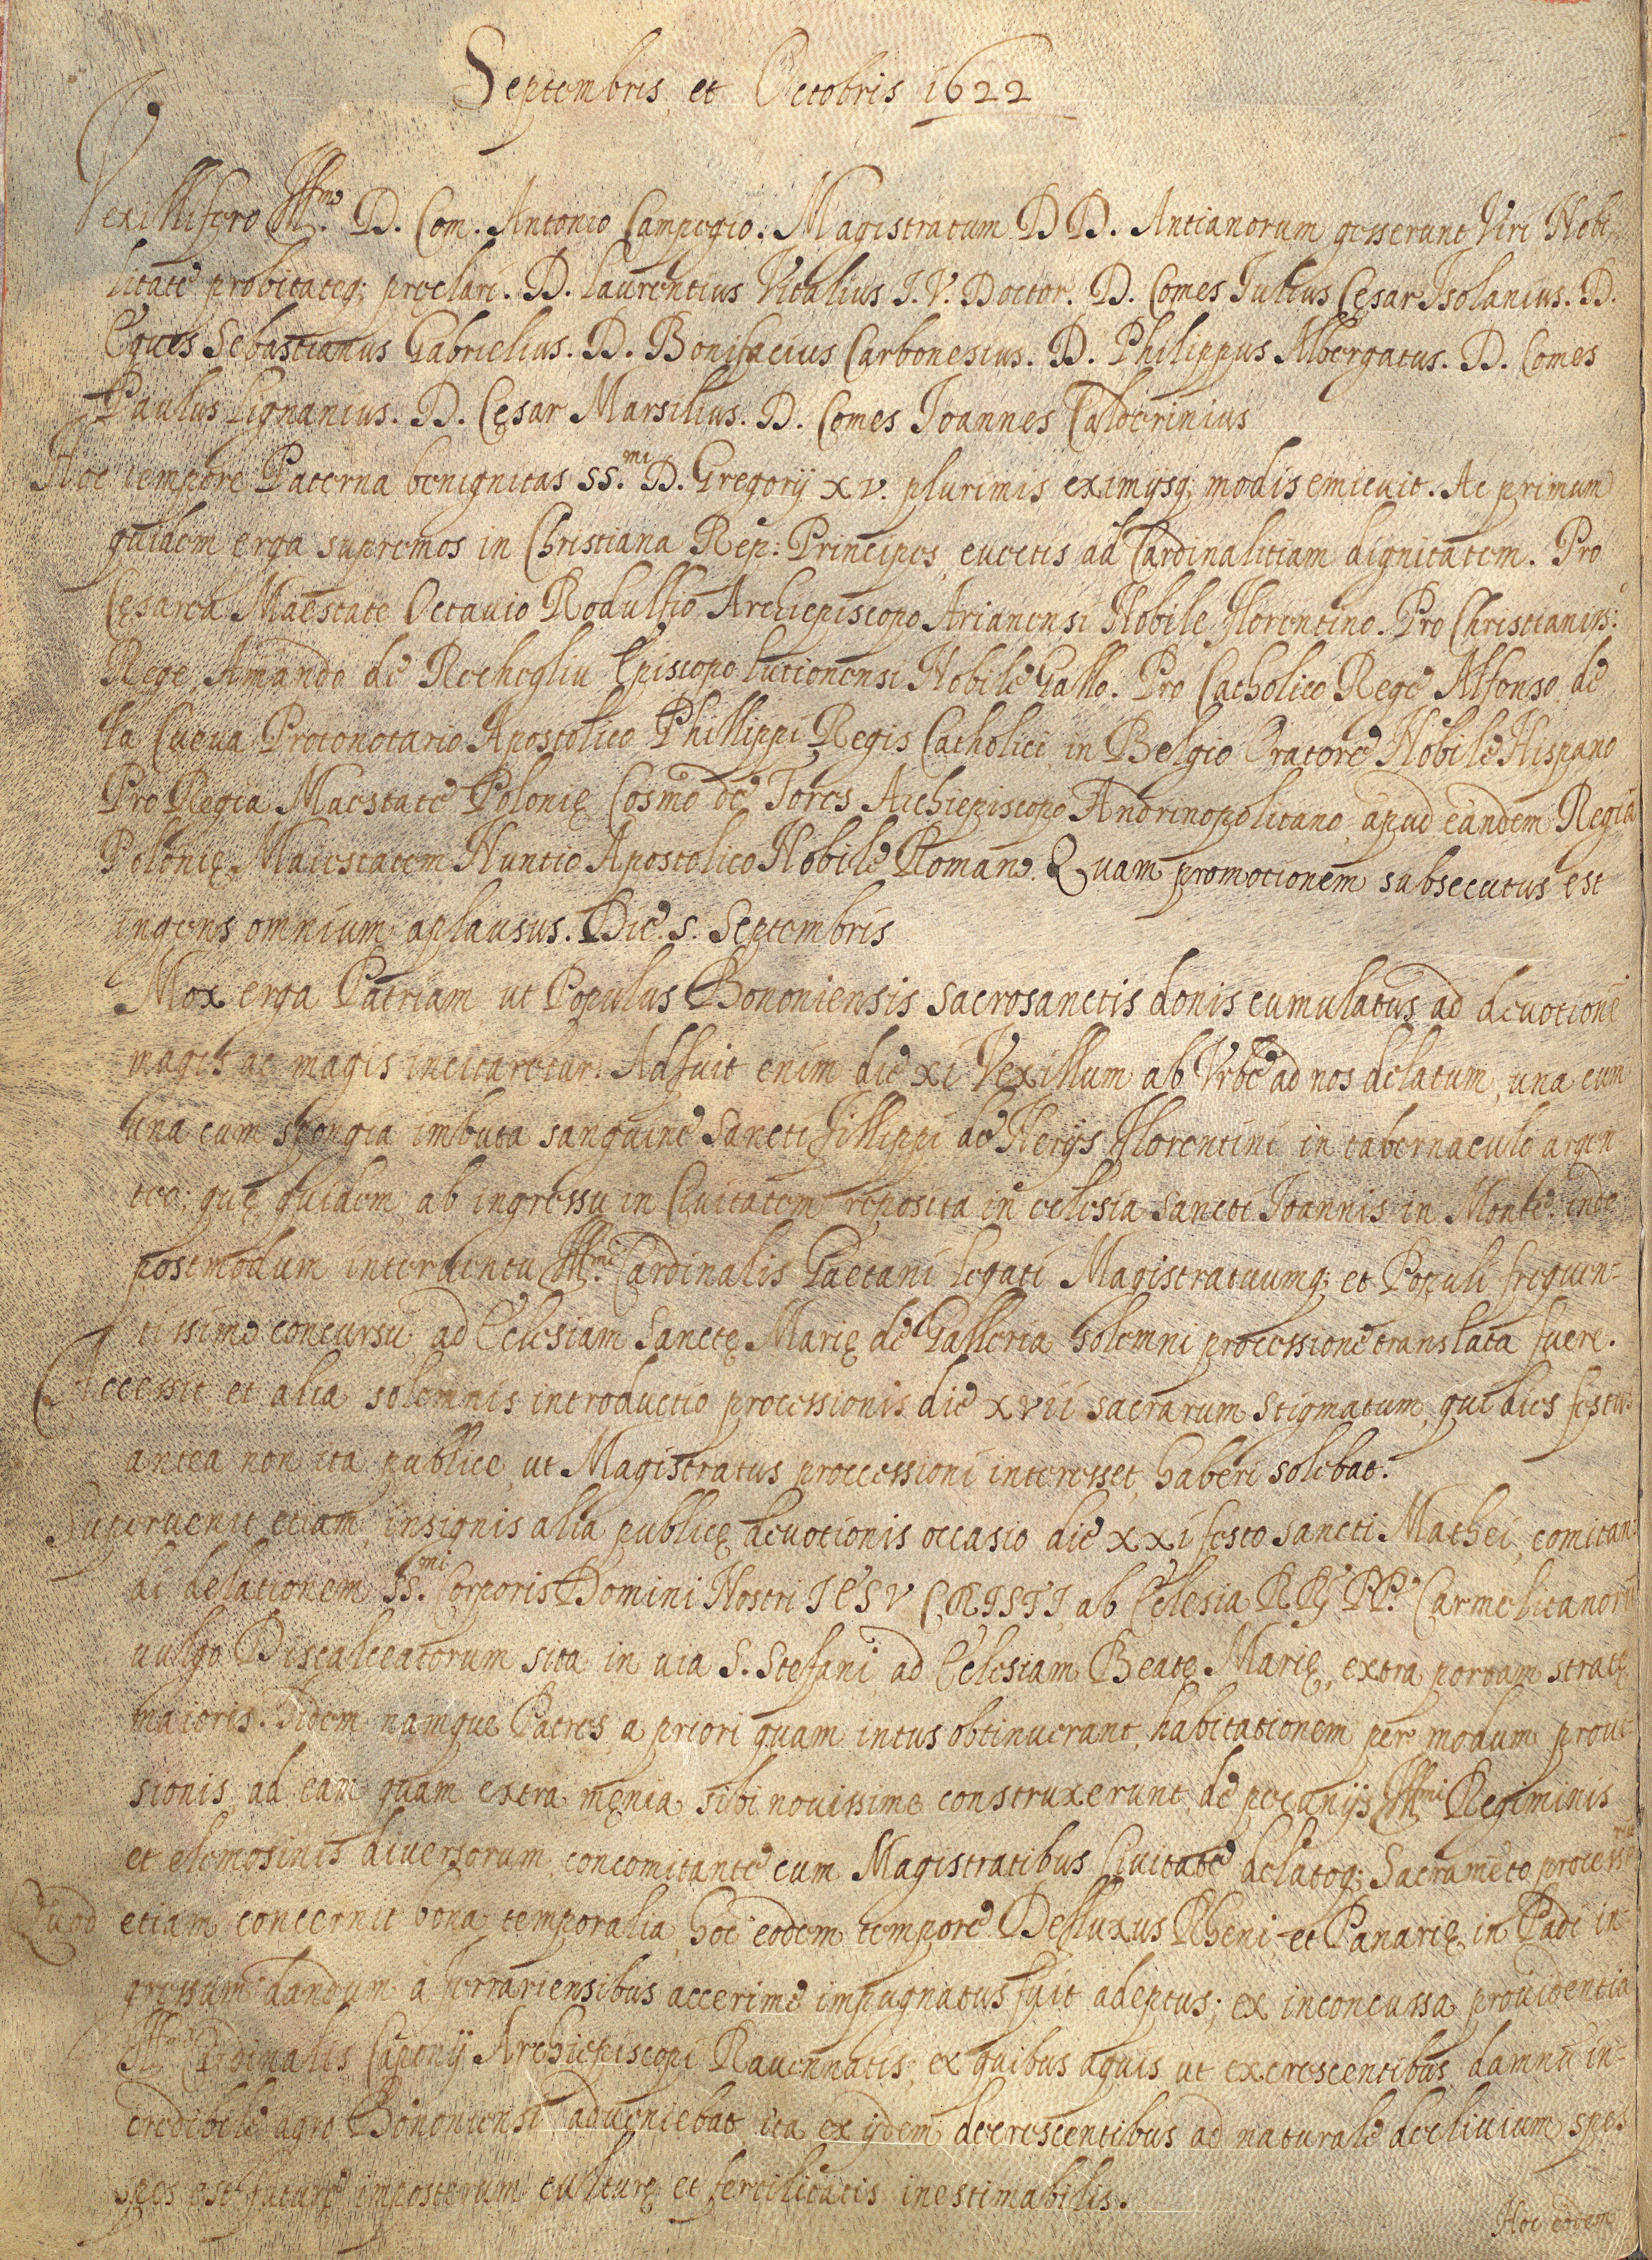 Septembris et Octobris 1622
Vexillifero Ill.mo D. Com. Antonio Campegio. Magistratum DD. Antianorum gesserunt Viri Nobi-
litate probitateq; preclari. D. Laurentius Vitalius I. V. Doctor. D. Comes Iulius Cęsar Isolanius. D.
Eques Sebastianus Gabrielius. D. Bonifacius Carbonesius. D. Philippus Albergatus. D. Comes
Paulus Lignanius. D. Cęsar Marsilius. D. Comes Ioannes Calderinius
Hoc tempore Paterna benignitas SS.mi D. Gregorij XV. plurimis eximijsq; modis emicuit. Ac primum
quidem erga supremos in Christiana Rep: Principes, euectis ad Cardinalitiam dignitatem. Pro
Cęsarea Maestate Octauio Rodulfio Archiepiscopo Arianensi Nobile Florentino. Pro Christianiss:o
Rege, Amando de Rechegliu Episcopo Lucionensi Nobile Gallo. Pro Catholico Rege Alfonso de
la Cueua Protonotario Apostolico Phillippi Regis Catholici in Belgio Oratore Nobile Hispano
Pro Regia Maestate Polonię Cosmo de Tores Archiepiscopo Andrinopolitano, apud eandem Regiã
Polonię Maiestatem Nuntio Apostolico Nobile Romano. Quam promotionem subsecutus est
ingens omnium aplausus. Die. 5. Septembris
Mox erga Patriam ut Populus Bononiensis sacrosanctis donis cumulatus ad deuotionẽ
magis ac magis incitaretur. Adfuit enim die xi Vexillum ab Vrbe ad nos delatum, una cum
una cum spongia imbuta sanguine Sancti Fillippi de Nerijs Florentini in tabernaculo argen
teo; quę quidem ab ingressu in Ciuitatem reposita in eclesia Sancti Ioannis in Monte inde
postmodum interuentu Ill.mi Cardinalis Gaetani Legati Magistratuumq; et Populi frequen=
tissimo concursu ad Eclesiam Sanctę Marię de Galleria solemni processione translata fuere.
Accessit et alia solemnis introductio processionis die XVII sacrarum Stigmatum, qui dies festus
antea non ita publice, ut Magistratus proccessioni interesset, haberi solebat.
Superuenit etiam insignis alia publicę deuotionis occasio die XXI festo sancti Mathei, comitan=
di delationem SS.mi Corporis Domini Nostri IESV CRISTI, ab Eclesia RR. PP. Carmelitanorũ
uulgo Discalceatorum sita in uia S. Stefani, ad Eclesiam Beatę Marię, extra portam stratę
maioris. Iidem namque Patres, a priori quam intus obtinuerant, habitationem per modum proui-
sionis, ad eam quam extra męnia sibi nouissime construxerunt de pecunijs Ill.mi Regiminis
et elemosinis diuersorum, concomitante cum Magistratibus Ciuitate delatoq; Sacramẽto processere
Quod etiam concernit bona temporalia, hoc eodem tempore Defluxus Rheni et Panarię in Padi in=
gressum dandum a ferrariensibus accerime impugnatus fuit adeptus; ex inconcussa prouidentia
Ill.mi Cardinalis Caponij Archiepiscopi Rauennatis; ex quibus aquis ut excrescentibus damnũ in=
credibile agro Bononiensi adueniebat, ita ex ijdem decrescentibus ad naturale decliuium spes
spes est futurę imposterum culturę et fertilitatis inestimabilis.
Hoc eodem